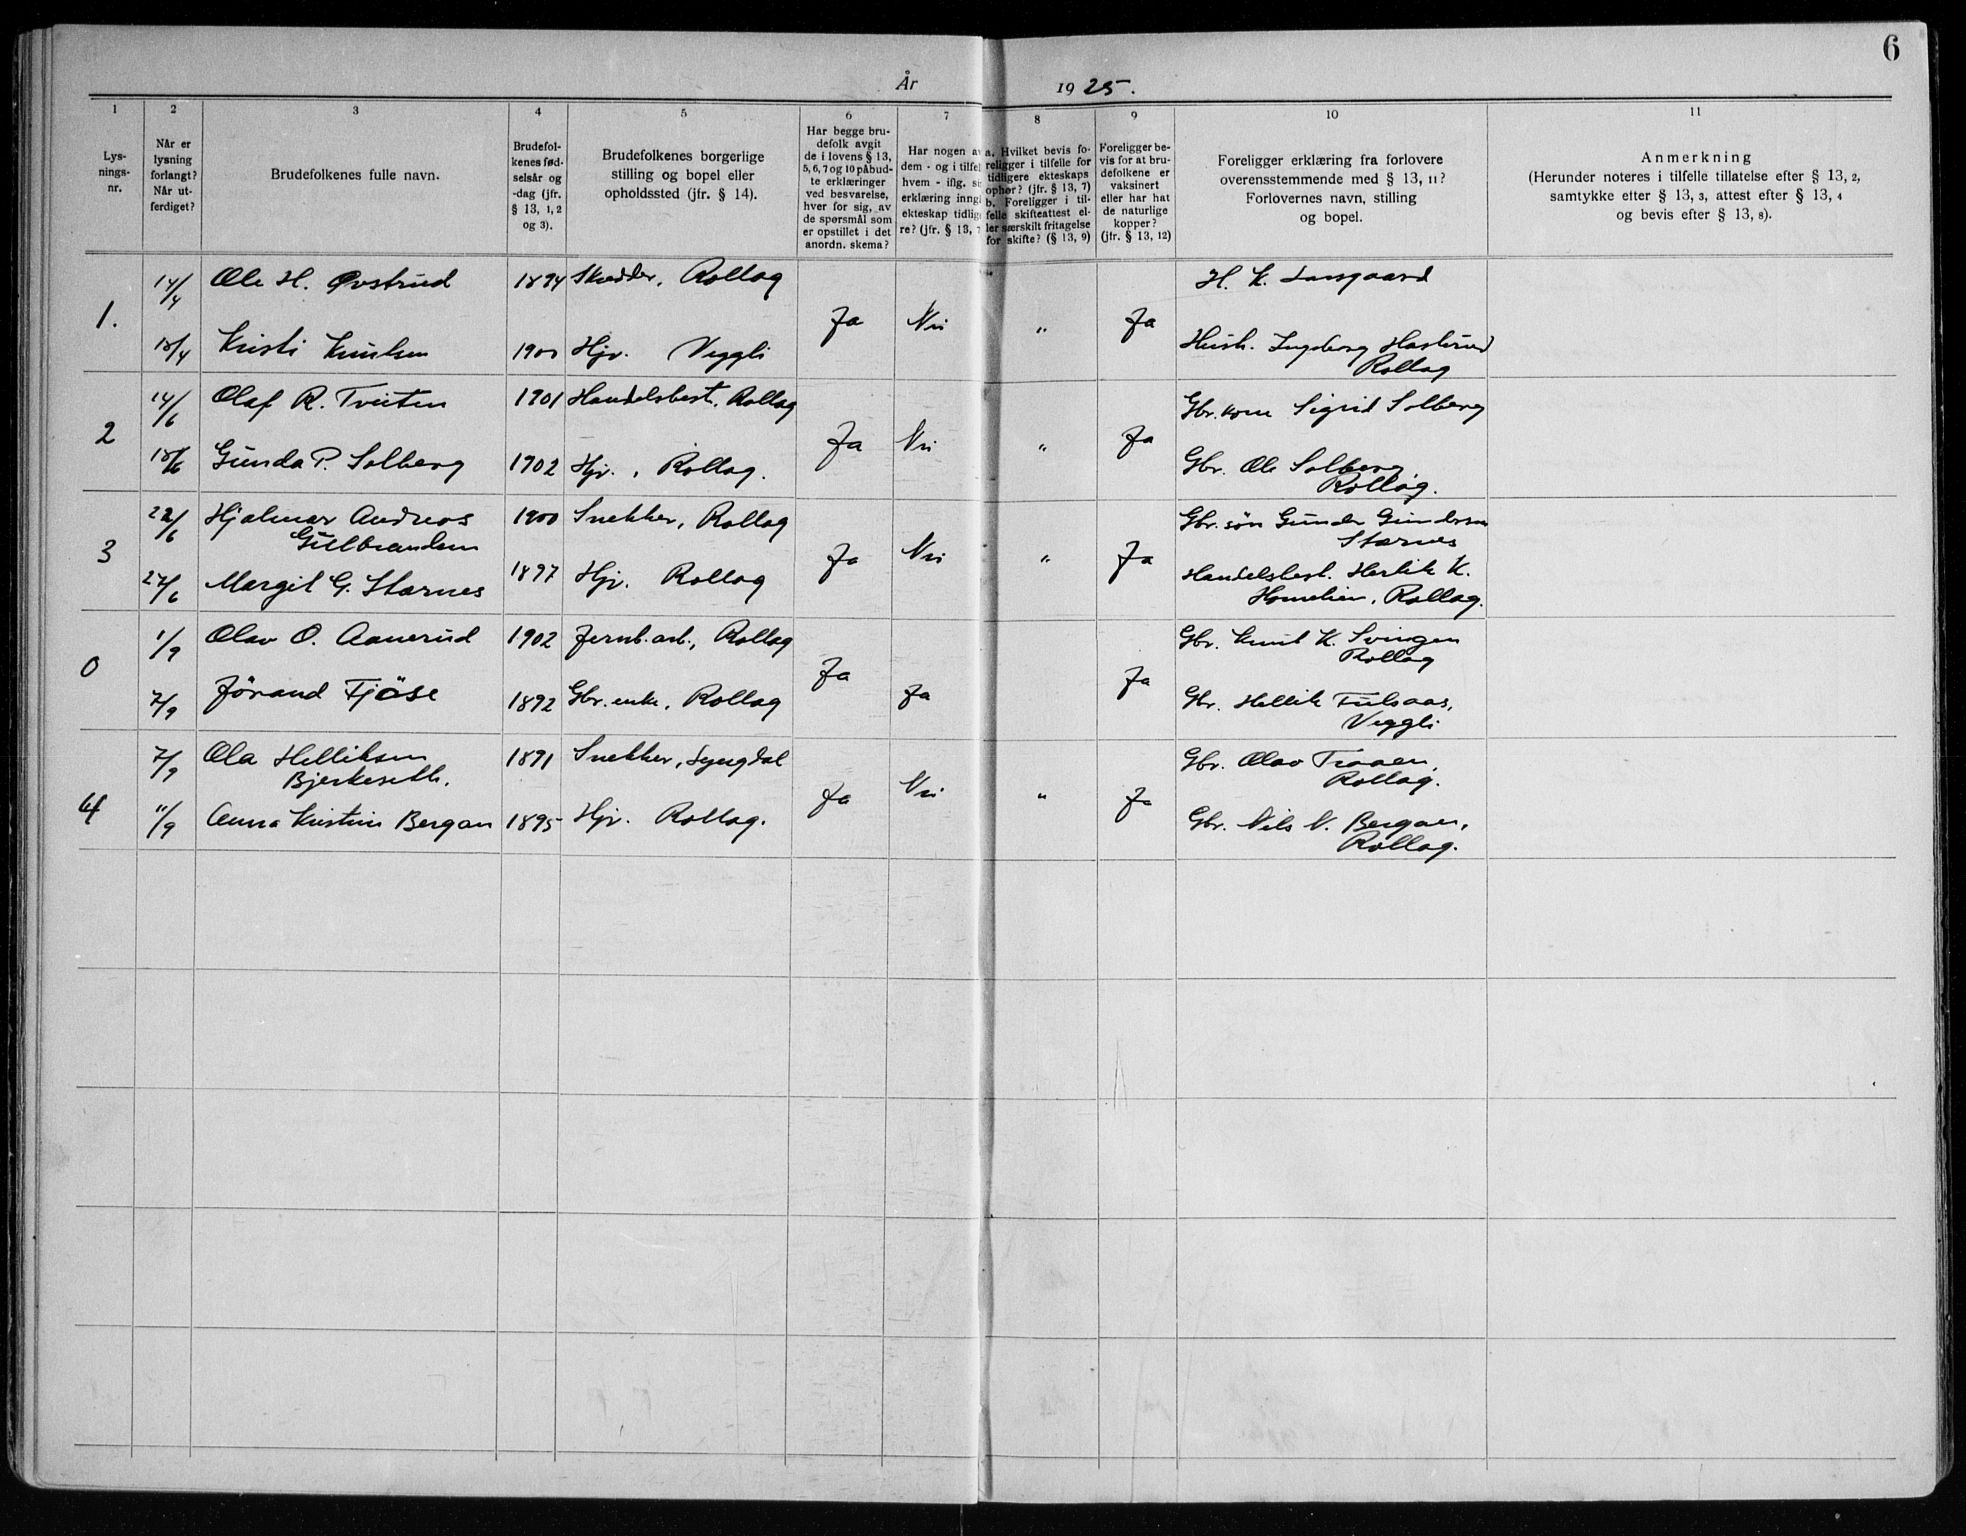 6
År 1925.
1 2 3 4 5 6 7 8 9 10 11
Lys-
nings-
nr.
Når er
lysning
forlangt?
Når ut-
ferdiget?
Brudefolkenes fulle navn.
Brudefol-
kenes fød-
selsår og
-dag (jfr.
§ 13, 1, 2
og 3).
Brudefolkenes borgerlige
stilling og bopel eller
opholdssted (jfr. § 14).
Har begge bru-
defolk avgit
de i lovens § 13,
5, 6, 7 og 10 påbud-
te erklæringer
ved besvarelse,
hver for sig, av
de spørsmål som
er opstillet i det
anordn. skema?
Har nogen av
dem - og i tilfel
hvem - iflg. si
erklæring inngå
ekteskap tidlige
re? (jfr. § 13, 7
a. Hvilket bevis fo-
religger i tilfelle for
tidligere ekteskaps
ophør? (jfr. § 13, 7)
b. Foreligger i til-
felle skifteattest el-
ler særskilt fritagelse
for skifte? (§ 13, 9)
Foreligger be-
vis for at bru-
defolkene er
vaksinert
eller har hat
de naturlige
kopper?
(jfr. § 13, 12)
Foreligger erklæring fra forlovere
overensstemmende med § 13, 11?
Forlovernes navn, stilling
og bopel.
Anmerkning
(Herunder noteres i tilfelle tillatelse efter § 13, 2,
samtykke efter § 13, 3, attest efter § 13, 4
og bevis efter § 13, 8).
1. 14/4 Ole H. Øvstrud 1894 Skredder, Rollag Ja Nei " Ja H. K.
18/4 Kristi Knutsen 1900 Hjv. Veggli Hush. Ingeborg Haslerud
Rollag
2 14/6 Olaf R. Tveiten 1901 Handelsbest. Rollag Ja Nei " Ja Gbr. kone Sigrid Solberg
18/6 Gunda P. Solberg 1902 Hjv., Rollag. Gbr. Ole Solberg
Rollag.
3 22/6 Hjalmar Andreas 1900 Snekker, Rollag Ja Nei " Ja Gbr. søn Gunder Gundersen
Gulbrandsen Starnes
27/6 Margit G. Starnes 1897 Hjv. Rollag Handelsbest. K.
Rollag.
0 1/9 Olav O. Aanerud 1902 Jernb. arb., Rollag Ja Ja Ja Gbr. Knut K. Svingen
Rollag
7/9 Jörand Fjöse 1892 Gbr. enke, Rollag Gbr. Hellik Fulsaas,
Veggli
4 7/9 Ola Helliksen 1891 Snekker, Lyngdal Ja Nei " Ja Gbr. Olav Traaen,
Bjerkeseth. Rollag.
11/9 Anna Kristine Bergan 1895 Hjv. Rollag. Gbr. Nils N. Bergan,
Rollag.